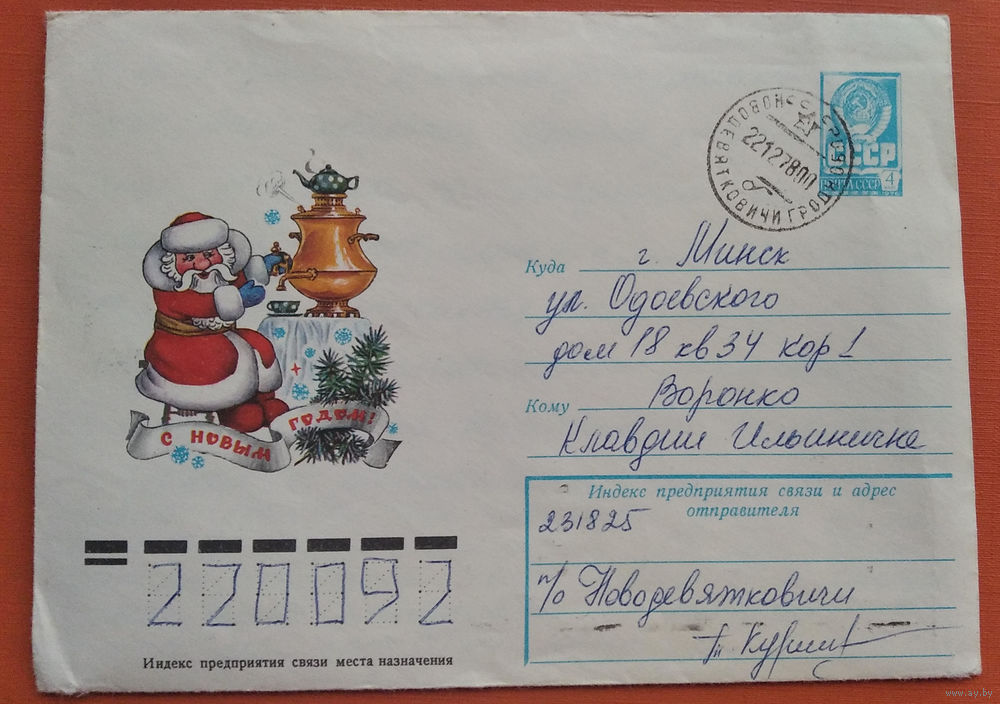 СССР
ПОЧТА СССР 4
НОВОДЕВЯТКОВИЧИ ГРОДН ОБЛ
22127800
Куда г. Минск
ул. Одоевского
дом 18 кв 34 кор 1
Кому Воронко
Клавдии Ильиничне
С НОВЫМ ГОДОМ!
Индекс предприятия связи и адрес
отправителя
231825
п/о Новодевятковичи
220092
Индекс предприятия связи места назначения
www.ay.by